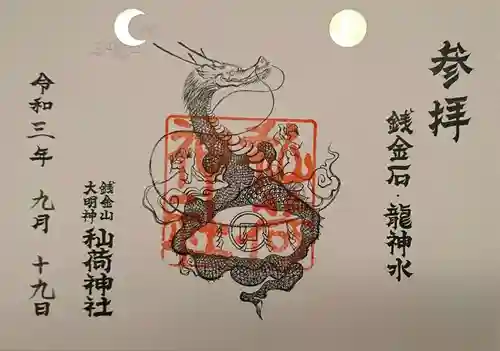 参拝
銭金石・龍神水
銭金山
大明神
秈荷神社
令和三年 九月 十九日